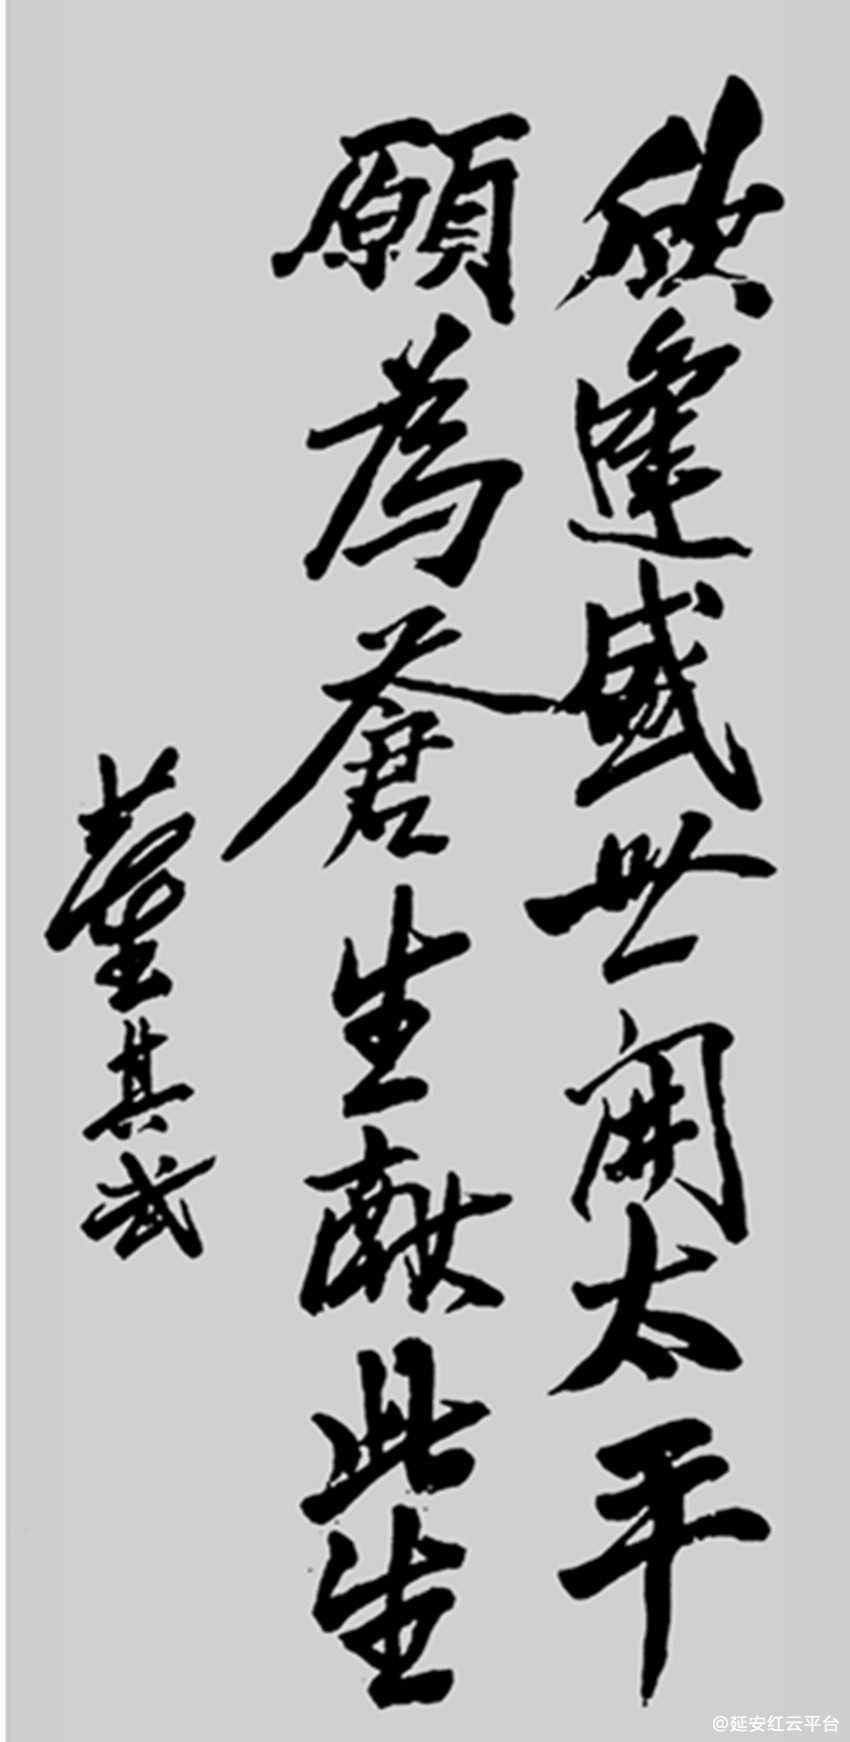 欣逢盛世開太平
願為蒼生獻此生
董其武
@延安红云平台